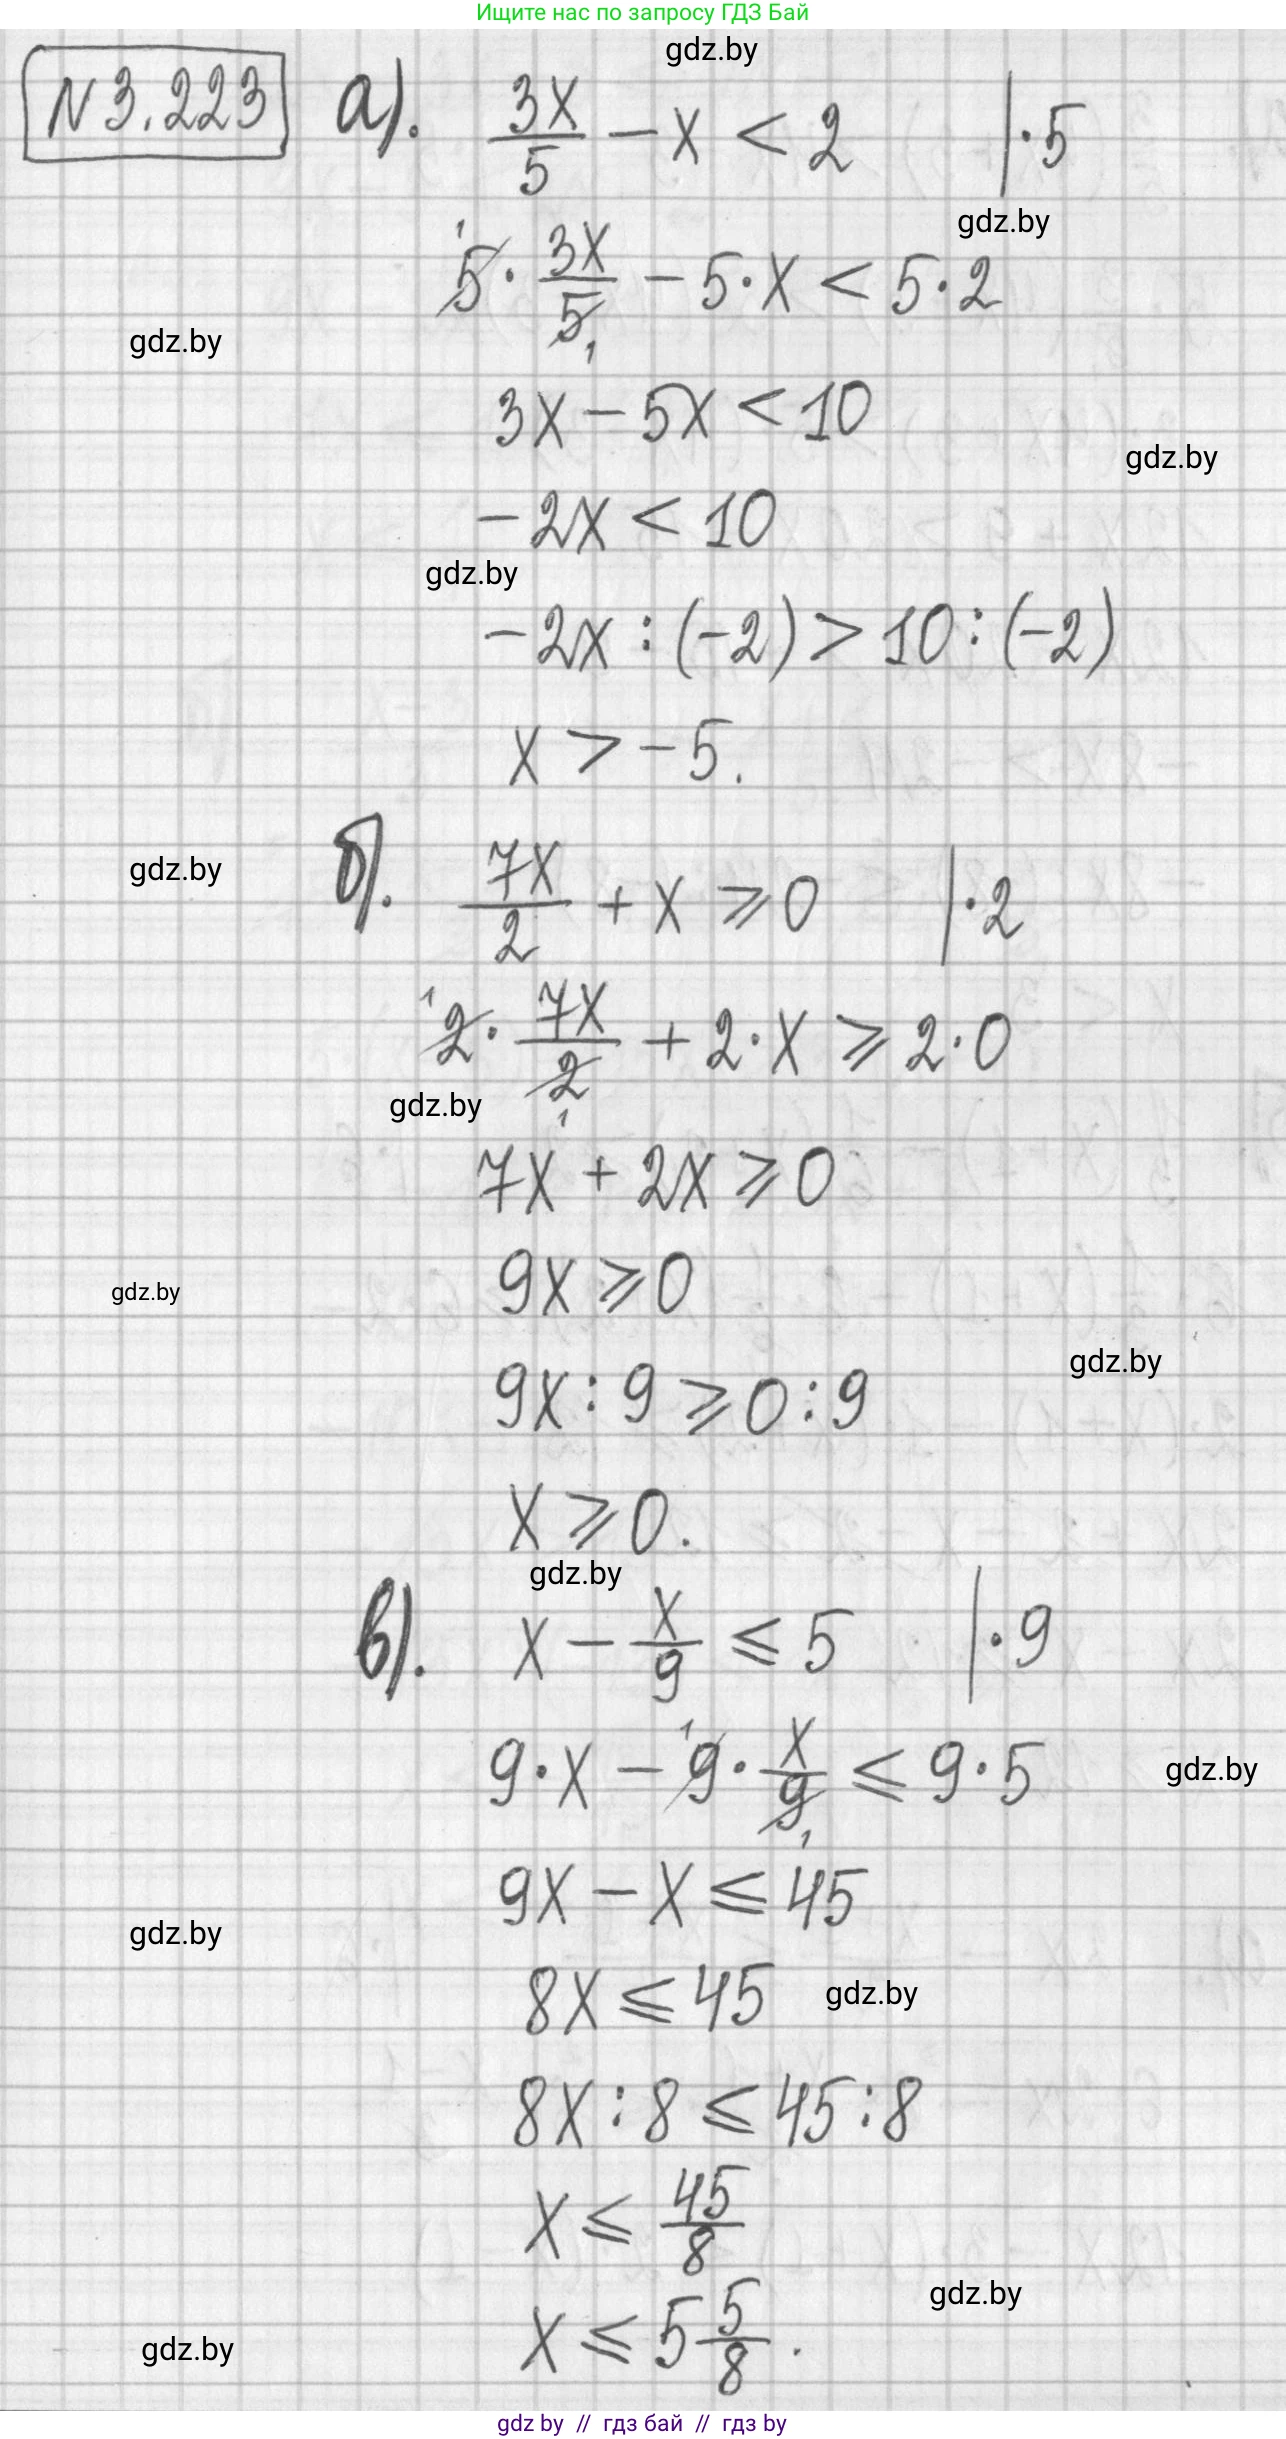 Ищите нас по запросу ГДЗ Бай
gdz.by
N 3.223 а). 3x/5 − x < 2 | · 5
gdz.by
¹5 · 3x/5₁ − 5 · x < 5 · 2
gdz.by
3x − 5x < 10
gdz.by
−2x < 10
gdz.by
−2x : (−2) > 10 : (−2)
x > −5.
gdz.by
б). 7x/2 + x ⩾ 0 | · 2
¹2 · 7x/2₁ + 2 · x ⩾ 2 · 0
gdz.by
7x + 2x ⩾ 0
9x ⩾ 0
gdz.by
gdz.by
9x : 9 ⩾ 0 : 9
x ⩾ 0.
gdz.by
в). x − x/9 ⩽ 5 | · 9
9 · x − ¹9 · x/9₁ ⩽ 9 · 5
gdz.by
9x − x ⩽ 45
gdz.by
8x ⩽ 45
gdz.by
8x : 8 ⩽ 45 : 8
x ⩽ 45/8
gdz.by
x ⩽ 5 5/8.
gdz.by
gdz by // гдз бай // гдз by